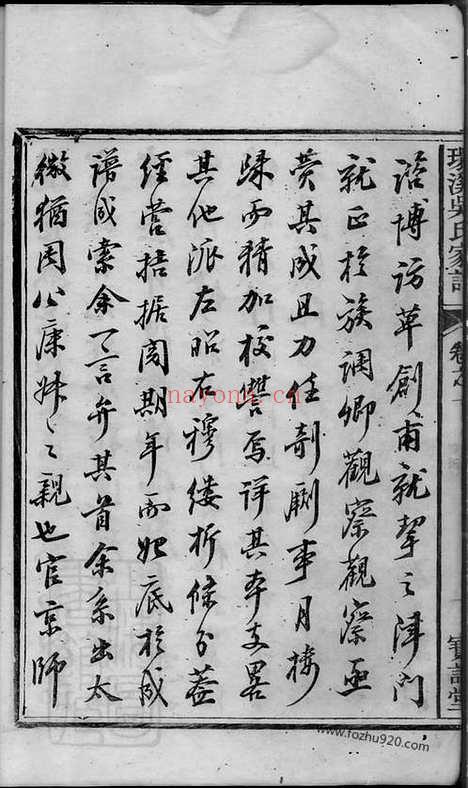 諮博訪草創甫就挈之津門
就正於族調卿觀察觀察亟
贊其成且力任剞劂事月接
歸而猶加校讐焉詳其本支畧
其他派左昭右穆縷析條分蓋
經營拮据閱期年而始底於成
譜成索余一言弁其首余系出太
微猶周公康叔之親也官京師
環溪吳氏家譜
卷之一
寶誥堂
nayona.cn
www.fozhu920.com